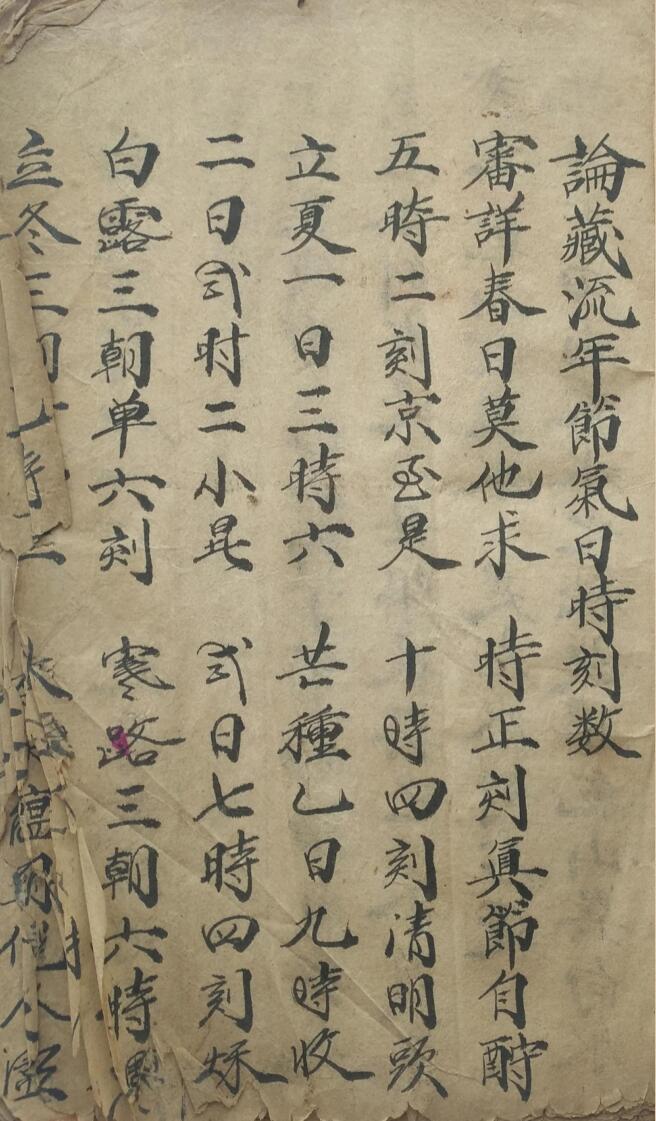 論藏流年節氣日時刻数
審詳春日莫他求 時正刻真節自酧
五時二刻京至是 十時四刻清明頭
立夏一日三時六 芒種乙日九時收
二日弍时二小是 弍日七時四刻秌
白露三朝单六刻 寒路三朝六時
立冬三